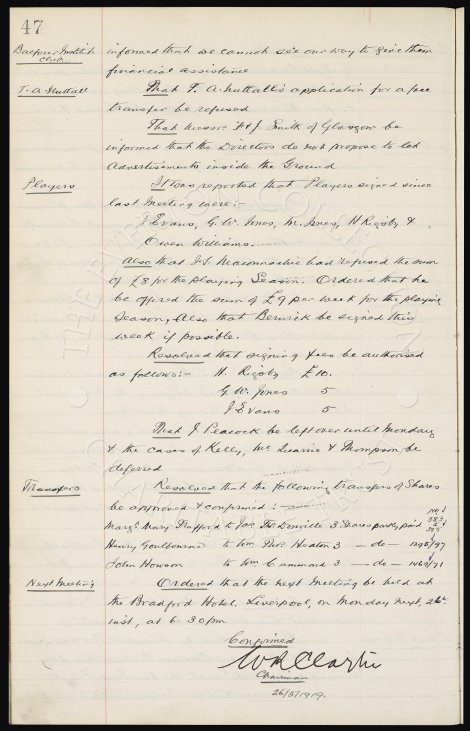 47
Balfour Institute informed that we cannot see our way to give them
Club. financial assistance
T. A. Nuttall That T. A. Nuttall's application for a free
transfer be refused
That messrs F & J. Smith of Glasgow be
informed that the Directors do not propose to let
Advertisements inside the Ground
Players It was reported that Players signed since
last Meeting were:-
J Evans, G. W. Jones, M. Jones, H Rigsby &
Owen Williams.
Also that J. S. Maconnachie had refused the sum
of £8 for the playing Season. Ordered that he
be offered the sum of £9 per week for the playing
Season, Also that Berwick be signed this
week if possible.
Resolved that signing fees be authorised
as follows:- H. Rigsby £10.
G. W. Jones 5
J Evans 5
That J. Peacock be left over until Monday
& the cases of Kelly, Mc Quarrie & Thompson be
deferred
Transfers Resolved that the following transfers of Shares
be approved & confirmed:-
Margt Mary Stafford to Jas. 3 Shares partly paid 383 385
Henry Goulbourne to Wm Thos. Heaton 3 - do - 1395/97
John Howson to Wm C. 3 - do - 1469/71
Next Meeting Ordered that the next Meeting be held at
the Bradford Hotel, Liverpool, on Monday next, 26th
inst, at 6.30pm
Confirmed
W R Clayton
Chairman
26/5/1919.
THE EVERTON COLLECTION